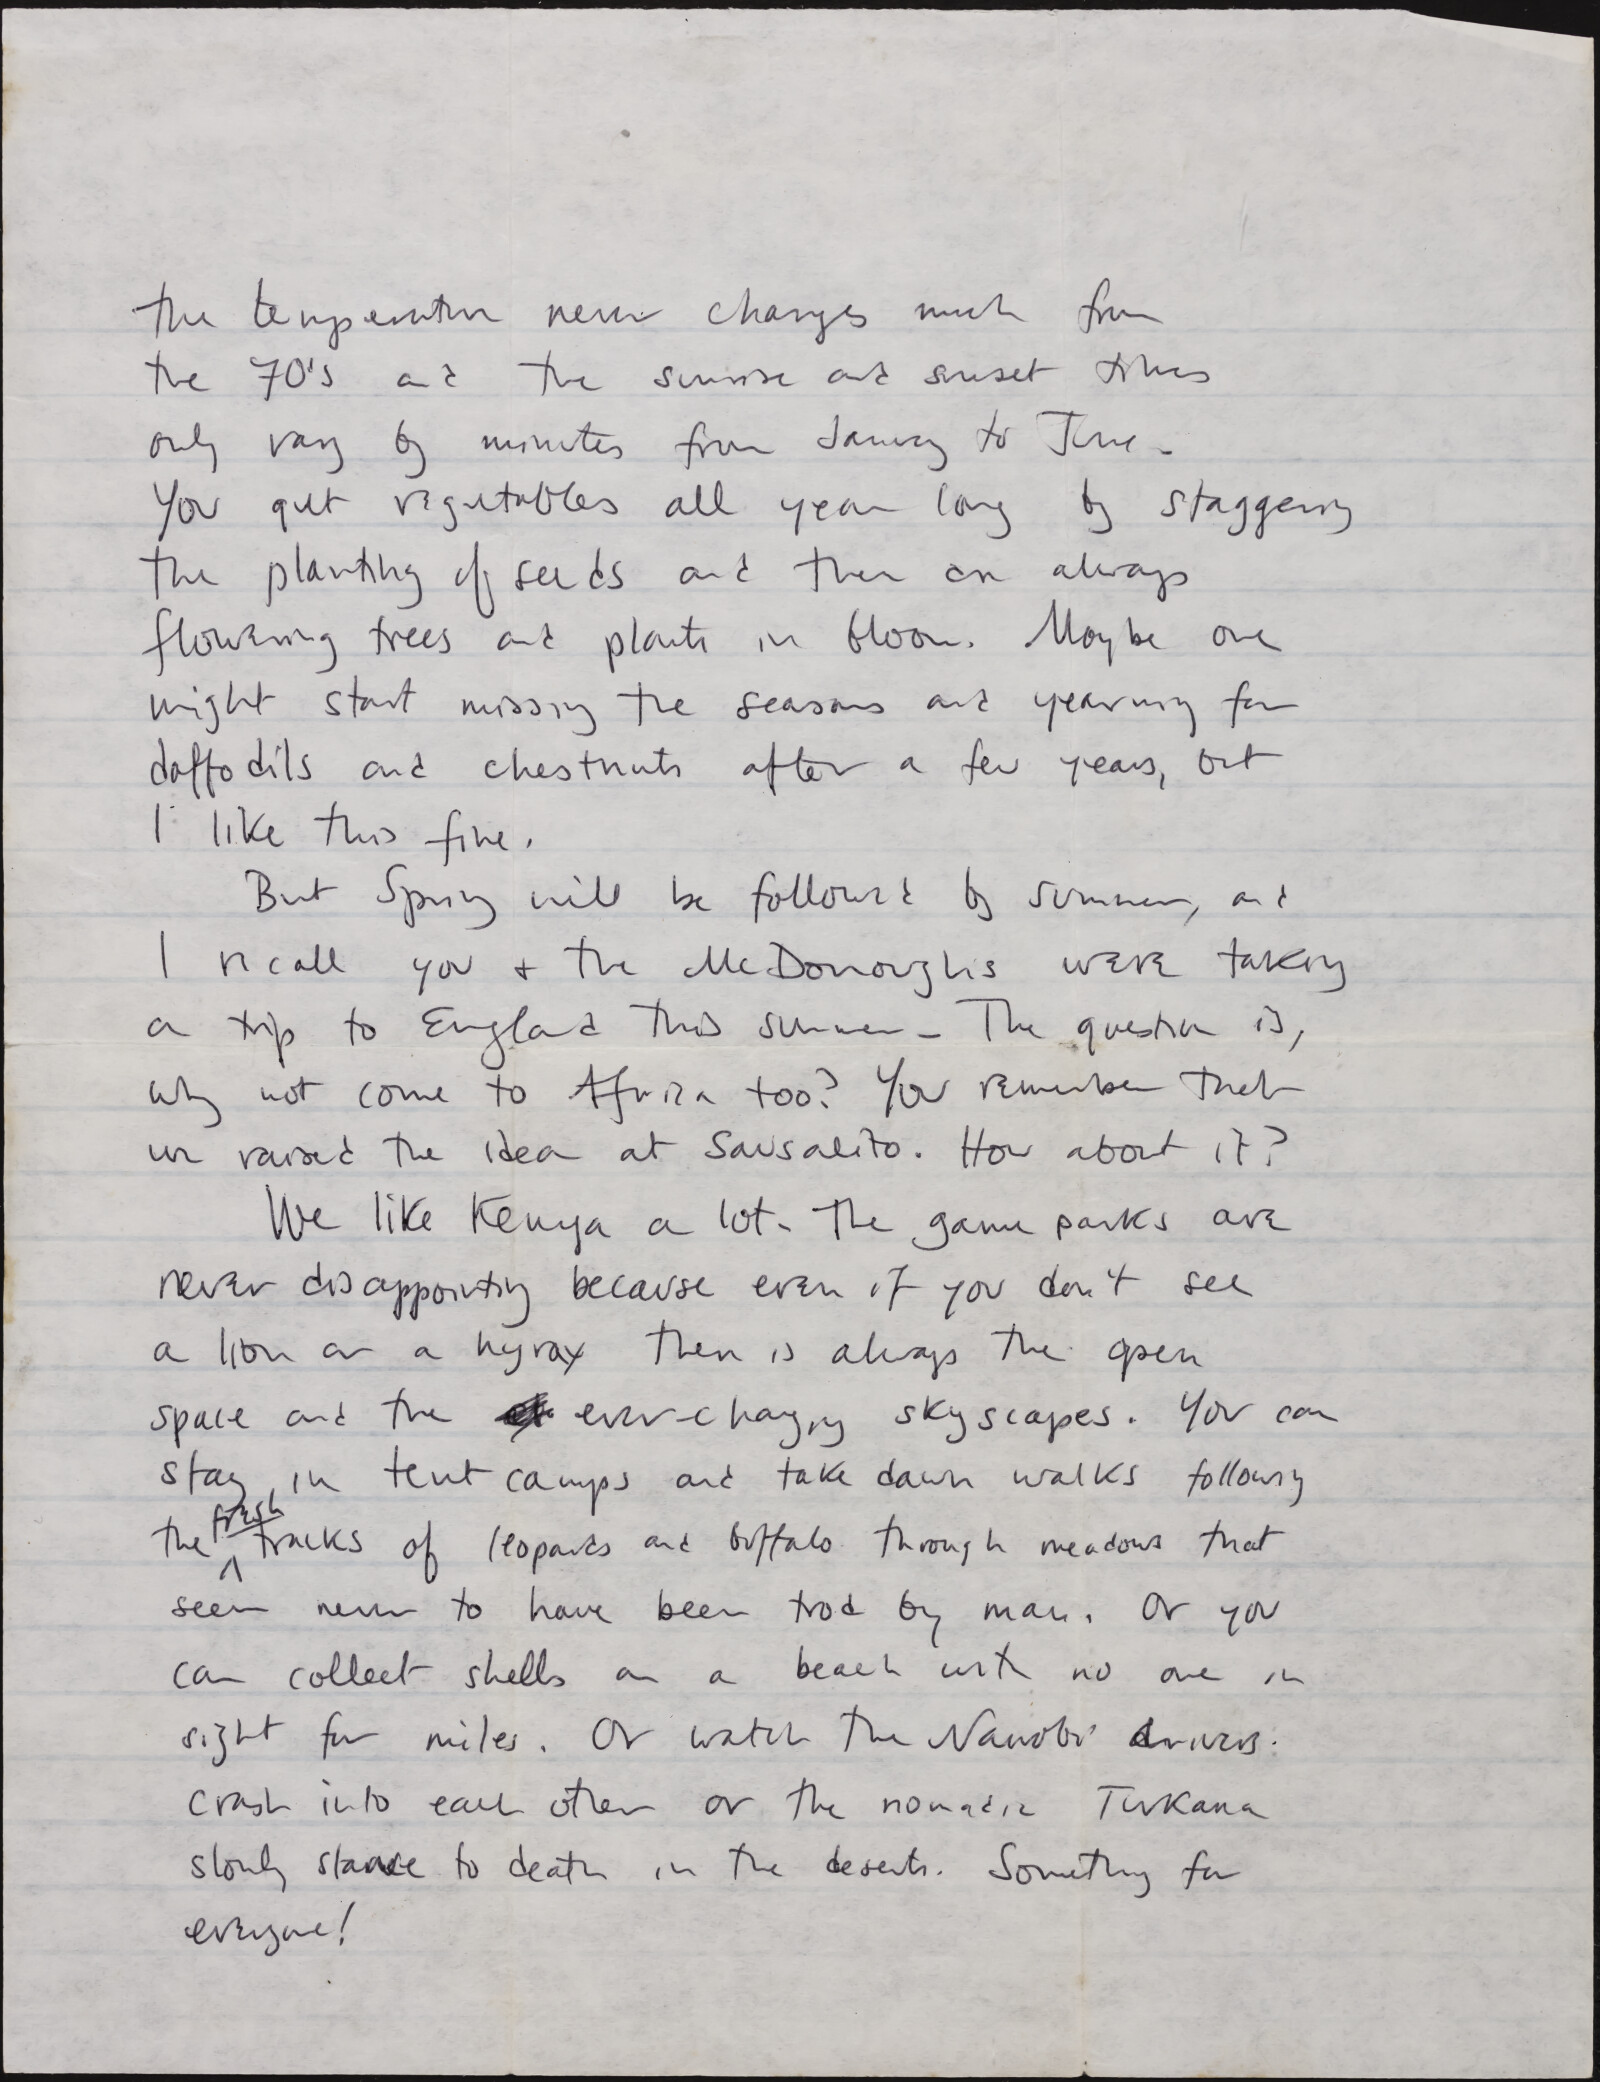 the temperature never changes much from
the 70's and the sunrise and sunset times
only vary by minutes from January to June.
You get vegetables all year long by staggering
the planting of seeds and there are always
flowering trees and plants in bloom. Maybe one
might start missing the seasons and yearning for
daffodils and chestnuts after a few years, but
I like this fine.
But Spring will be followed by summer, and
I recall you + the McDonoughs were taking
a trip to England this summer. The question is,
why not come to Africa too? You remember that
we raised the idea at Sausalito. How about it?
We like Kenya a lot. The game parks are
never disappointing because even if you don't see
a lion or a hyrax there is always the open
space and the ever-changing skyscapes. You can
stay in tent camps and take dawn walks following
the fresh tracks of leopards and buffalo through meadows that
seem never to have been trod by man. Or you
can collect shells on a beach with no one in
sight for miles. Or watch the Nairobi drivers
crash into each other or the nomadic Turkana
slowly starve to death in the deserts. Something for
everyone!